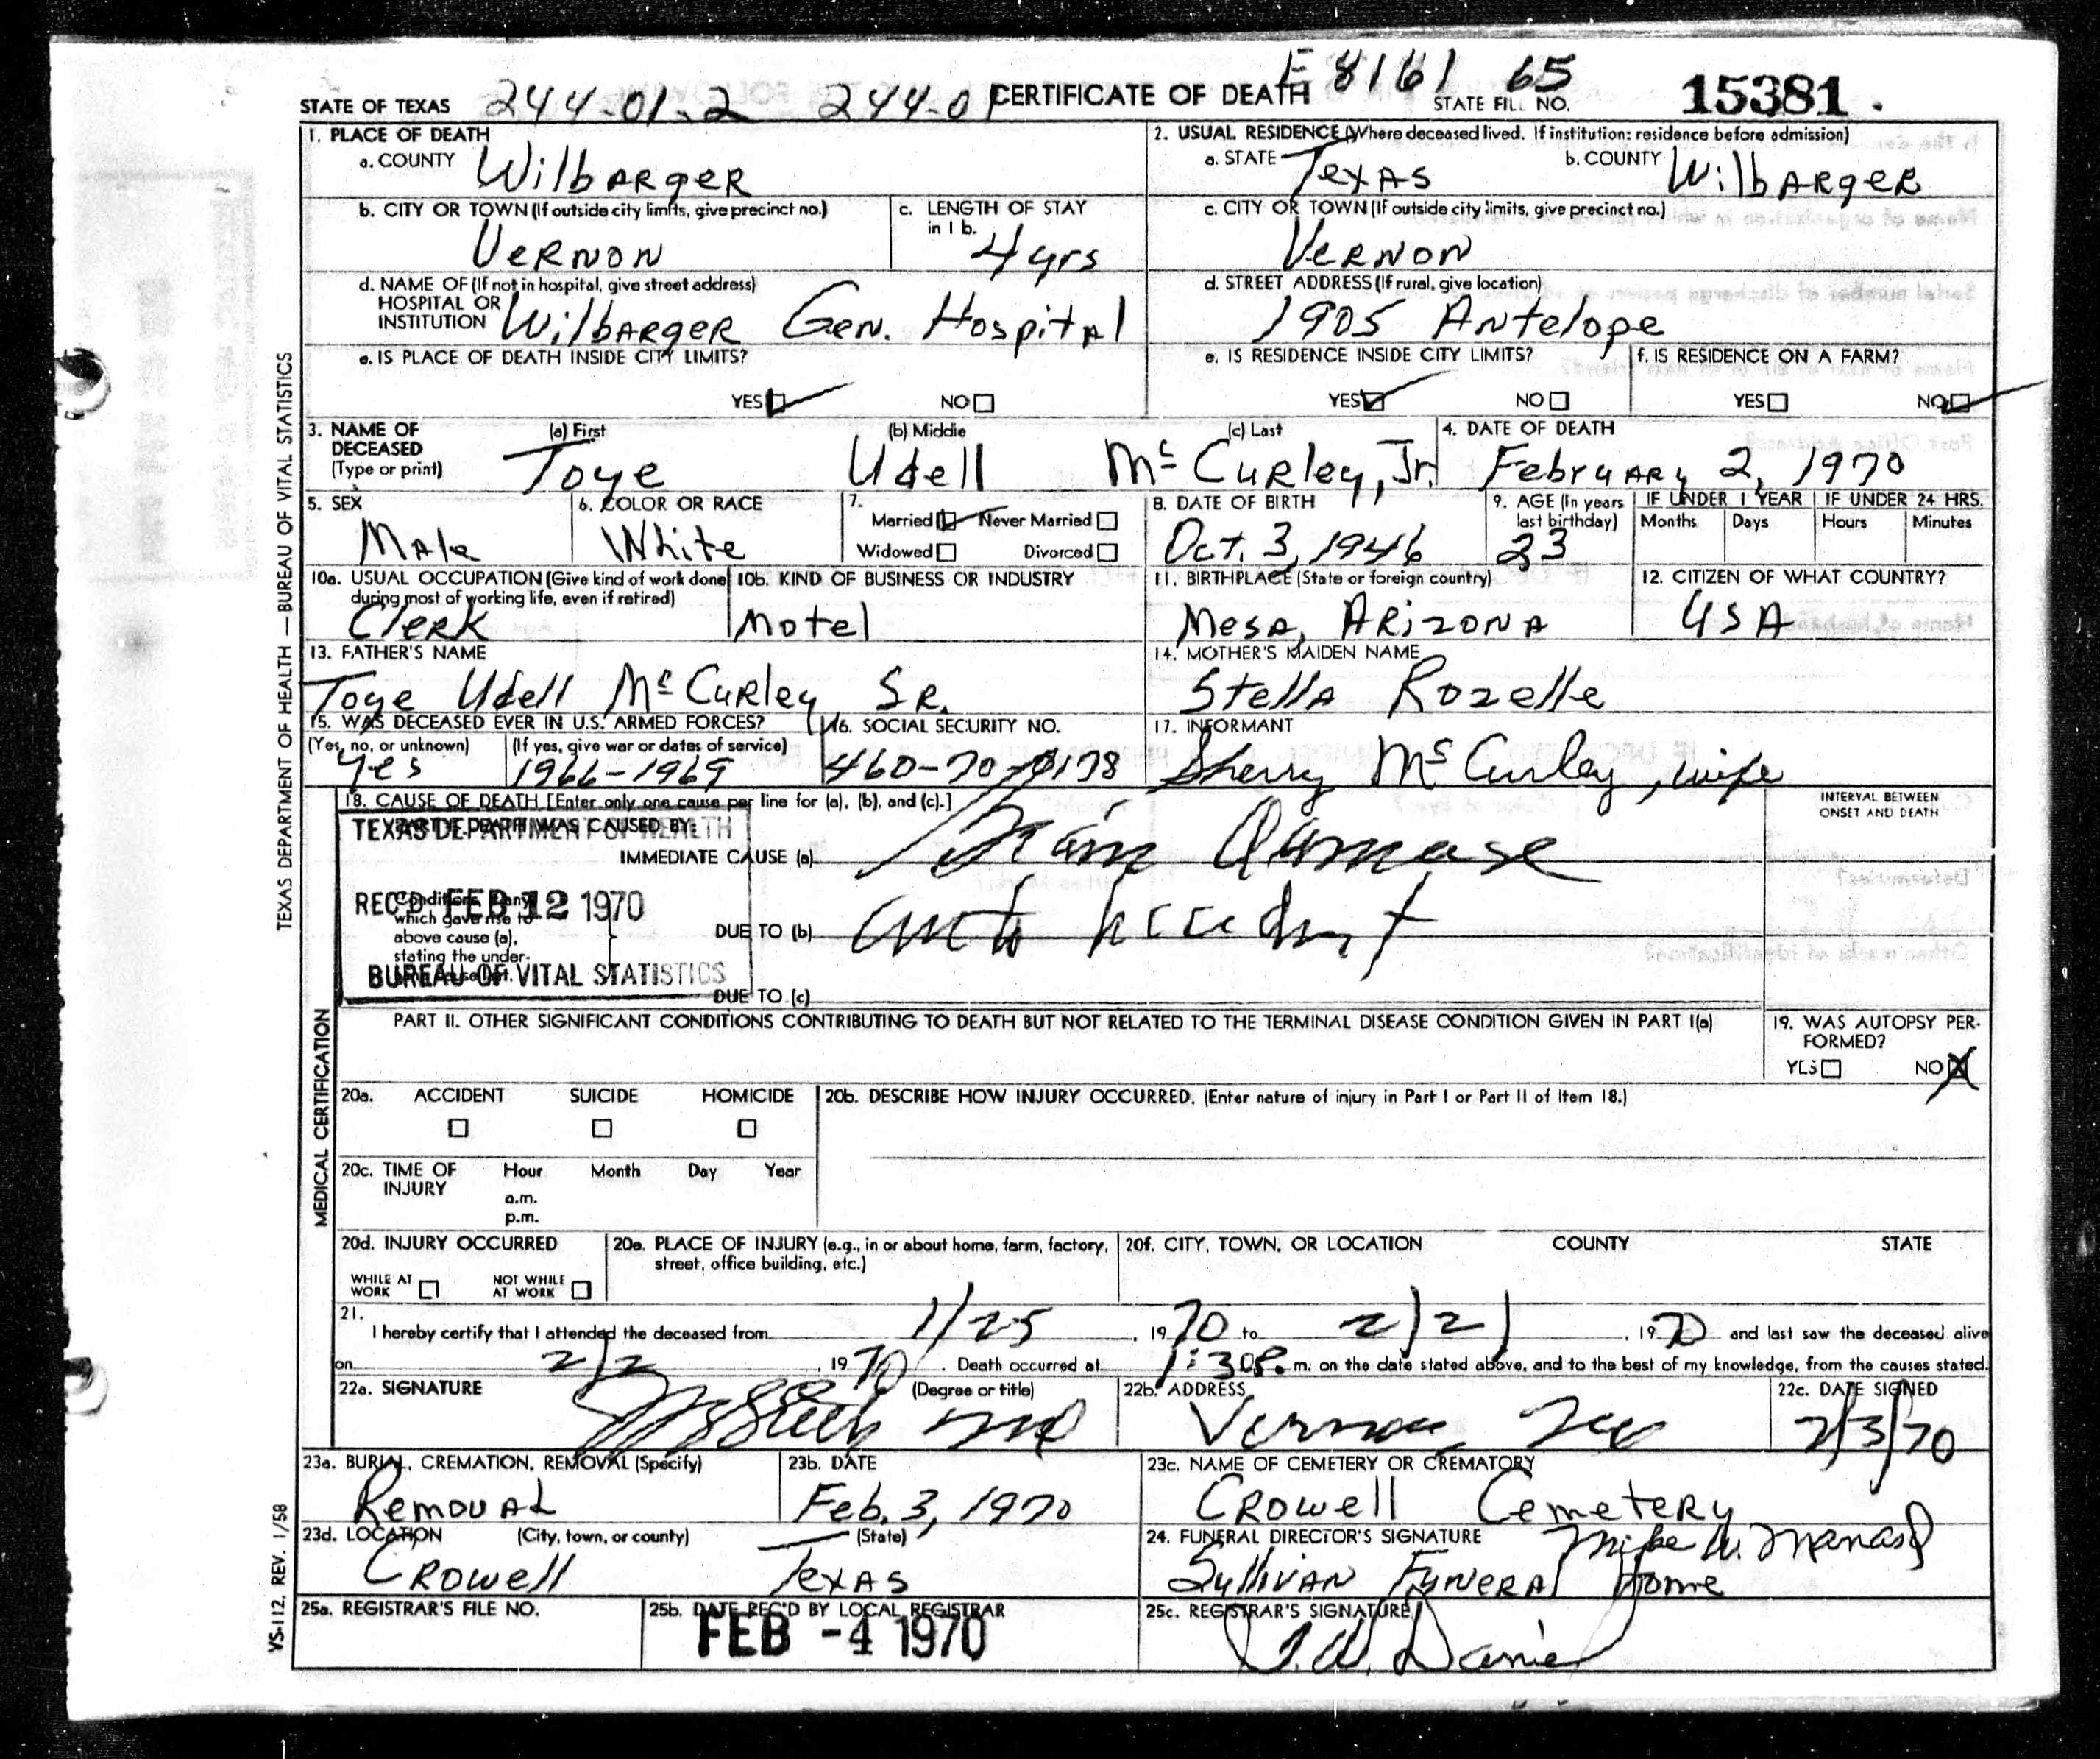 E 8161 65
STATE OF TEXAS 244-01-2 244-01 CERTIFICATE OF DEATH STATE FILE NO. 15381.
1. PLACE OF DEATH
a. COUNTY Wilbarger
2. USUAL RESIDENCE (Where deceased lived. If institution: residence before admission)
a. STATE Texas b. COUNTY Wilbarger
b. CITY OR TOWN (If outside city limits, give precinct no.) Vernon
c. LENGTH OF STAY in 1 b. 4 yrs
c. CITY OR TOWN (If outside city limits, give precinct no.) Vernon
d. NAME OF (If not in hospital, give street address)
HOSPITAL OR
INSTITUTION Wilbarger Gen. Hospital
d. STREET ADDRESS (If rural, give location)
1905 Antelope
e. IS PLACE OF DEATH INSIDE CITY LIMITS?
YES NO
e. IS RESIDENCE INSIDE CITY LIMITS?
YES NO
f. IS RESIDENCE ON A FARM?
YES NO
3. NAME OF DECEASED (Type or print)
(a) First (b) Middle (c) Last
Toye Udell McCurley, Jr.
4. DATE OF DEATH
February 2, 1970
5. SEX
Male
6. COLOR OR RACE
White
7.
Married Never Married
Widowed Divorced
8. DATE OF BIRTH
Oct. 3, 1946
9. AGE (In years last birthday)
23
IF UNDER 1 YEAR IF UNDER 24 HRS.
Months Days Hours Minutes
10a. USUAL OCCUPATION (Give kind of work done during most of working life, even if retired)
Clerk
10b. KIND OF BUSINESS OR INDUSTRY
Motel
11. BIRTHPLACE (State or foreign country)
Mesa, Arizona
12. CITIZEN OF WHAT COUNTRY?
USA
13. FATHER'S NAME
Toye Udell McCurley Sr.
14. MOTHER'S MAIDEN NAME
Stella Rozelle
15. WAS DECEASED EVER IN U.S. ARMED FORCES?
(Yes, no, or unknown) (If yes, give war or dates of service)
Yes 1966-1969
16. SOCIAL SECURITY NO.
460-70-0178
17. INFORMANT
Sherry McCurley, wife
18. CAUSE OF DEATH [Enter only one cause per line for (a), (b), and (c).]
INTERVAL BETWEEN ONSET AND DEATH
PART I. DEATH WAS CAUSED BY:
TEXAS DEPARTMENT OF HEALTH
IMMEDIATE CAUSE (a) Brain Damage
REC'D FEB 12 1970
Conditions, if any, which gave rise to above cause (a), stating the under-
BUREAU OF VITAL STATISTICS
DUE TO (b) auto accident
DUE TO (c)
PART II. OTHER SIGNIFICANT CONDITIONS CONTRIBUTING TO DEATH BUT NOT RELATED TO THE TERMINAL DISEASE CONDITION GIVEN IN PART I(a)
19. WAS AUTOPSY PER-
FORMED?
YES NO X
20a. ACCIDENT SUICIDE HOMICIDE
20b. DESCRIBE HOW INJURY OCCURRED. (Enter nature of injury in Part I or Part II of Item 18.)
20c. TIME OF INJURY Hour Month Day Year
a.m.
p.m.
20d. INJURY OCCURRED
WHILE AT WORK NOT WHILE AT WORK
20e. PLACE OF INJURY (e.g., in or about home, farm, factory, street, office building, etc.)
20f. CITY, TOWN, OR LOCATION COUNTY STATE
21.
I hereby certify that I attended the deceased from 1/25, 1970 to 2/2, 1970 and last saw the deceased alive
on 2/2, 1970. Death occurred at 1:30 P. m. on the date stated above, and to the best of my knowledge, from the causes stated.
22a. SIGNATURE (Degree or title)
MD
22b. ADDRESS
Vernon, Tex
22c. DATE SIGNED
2/3/70
23a. BURIAL, CREMATION, REMOVAL (Specify)
Removal
23b. DATE
Feb. 3, 1970
23c. NAME OF CEMETERY OR CREMATORY
Crowell Cemetery
23d. LOCATION (City, town, or county) (State)
Crowell Texas
24. FUNERAL DIRECTOR'S SIGNATURE
Mike W.
Sullivan Funeral Home
25a. REGISTRAR'S FILE NO.
25b. DATE REC'D BY LOCAL REGISTRAR
FEB -4 1970
25c. REGISTRAR'S SIGNATURE
Daniel
TEXAS DEPARTMENT OF HEALTH — BUREAU OF VITAL STATISTICS
MEDICAL CERTIFICATION
VS-112, REV. 1/58